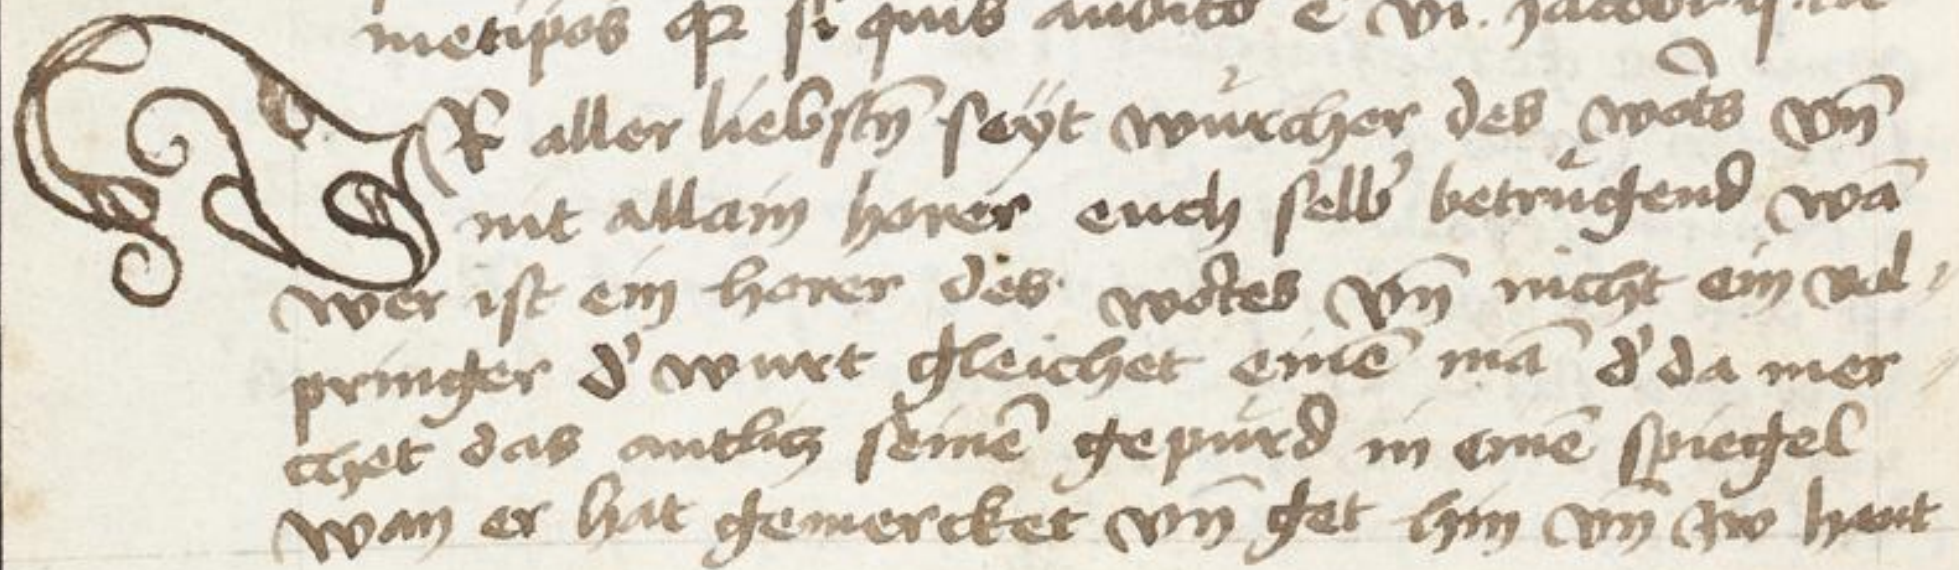 metipos qr si quis auditor e vi. Jacobi
IR aller liebstn̄ seyt würcher des wort̄s vn̄
nit allain horer euch selb' betrügend wā
wer ist ein horer des wortes vn̄ nicht ein vol-
pringer d' wurt gleichet einē mā d' da mer
chet das antlicz seinē gepürd in einē spiegel
wan er hat gemercket vn̄ get hin vn̄ zw hant